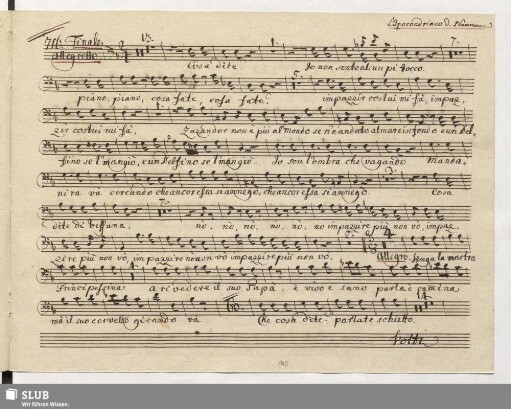 L'Ipocondriaco d. Naumann
7th. Finale.
Allegretto. 15. 1. 7.
Cosa dite. Io non sento alcun pi tocco.
piano, piano, cosa fate, cosa fate. impazzir costui mi fà, impaz,
zir costui mi fà, Lazander non è più al mondo se n'è andato al mare infondo e un Del,
fino se'l mangiò, e un Delfino se'l mangiò. Io son l'ombra che vagando Manda,
ni ra và cercando che ancor essa si annego, che ancor essa si annego. Cosa
dite di beffana, no, no, no, no, no impazzire più non vò, impaz,
zire più non vò, impazzire no non vò impazzire più non vò, Allegro. Senza la nostra
Principessina a rivedere il suo Papa, è vivo e sano parla e camina
mà il suo cervello girando và Che cosa dite. parlate schietto. 14
Volti
SLUB
Wir führen Wissen.